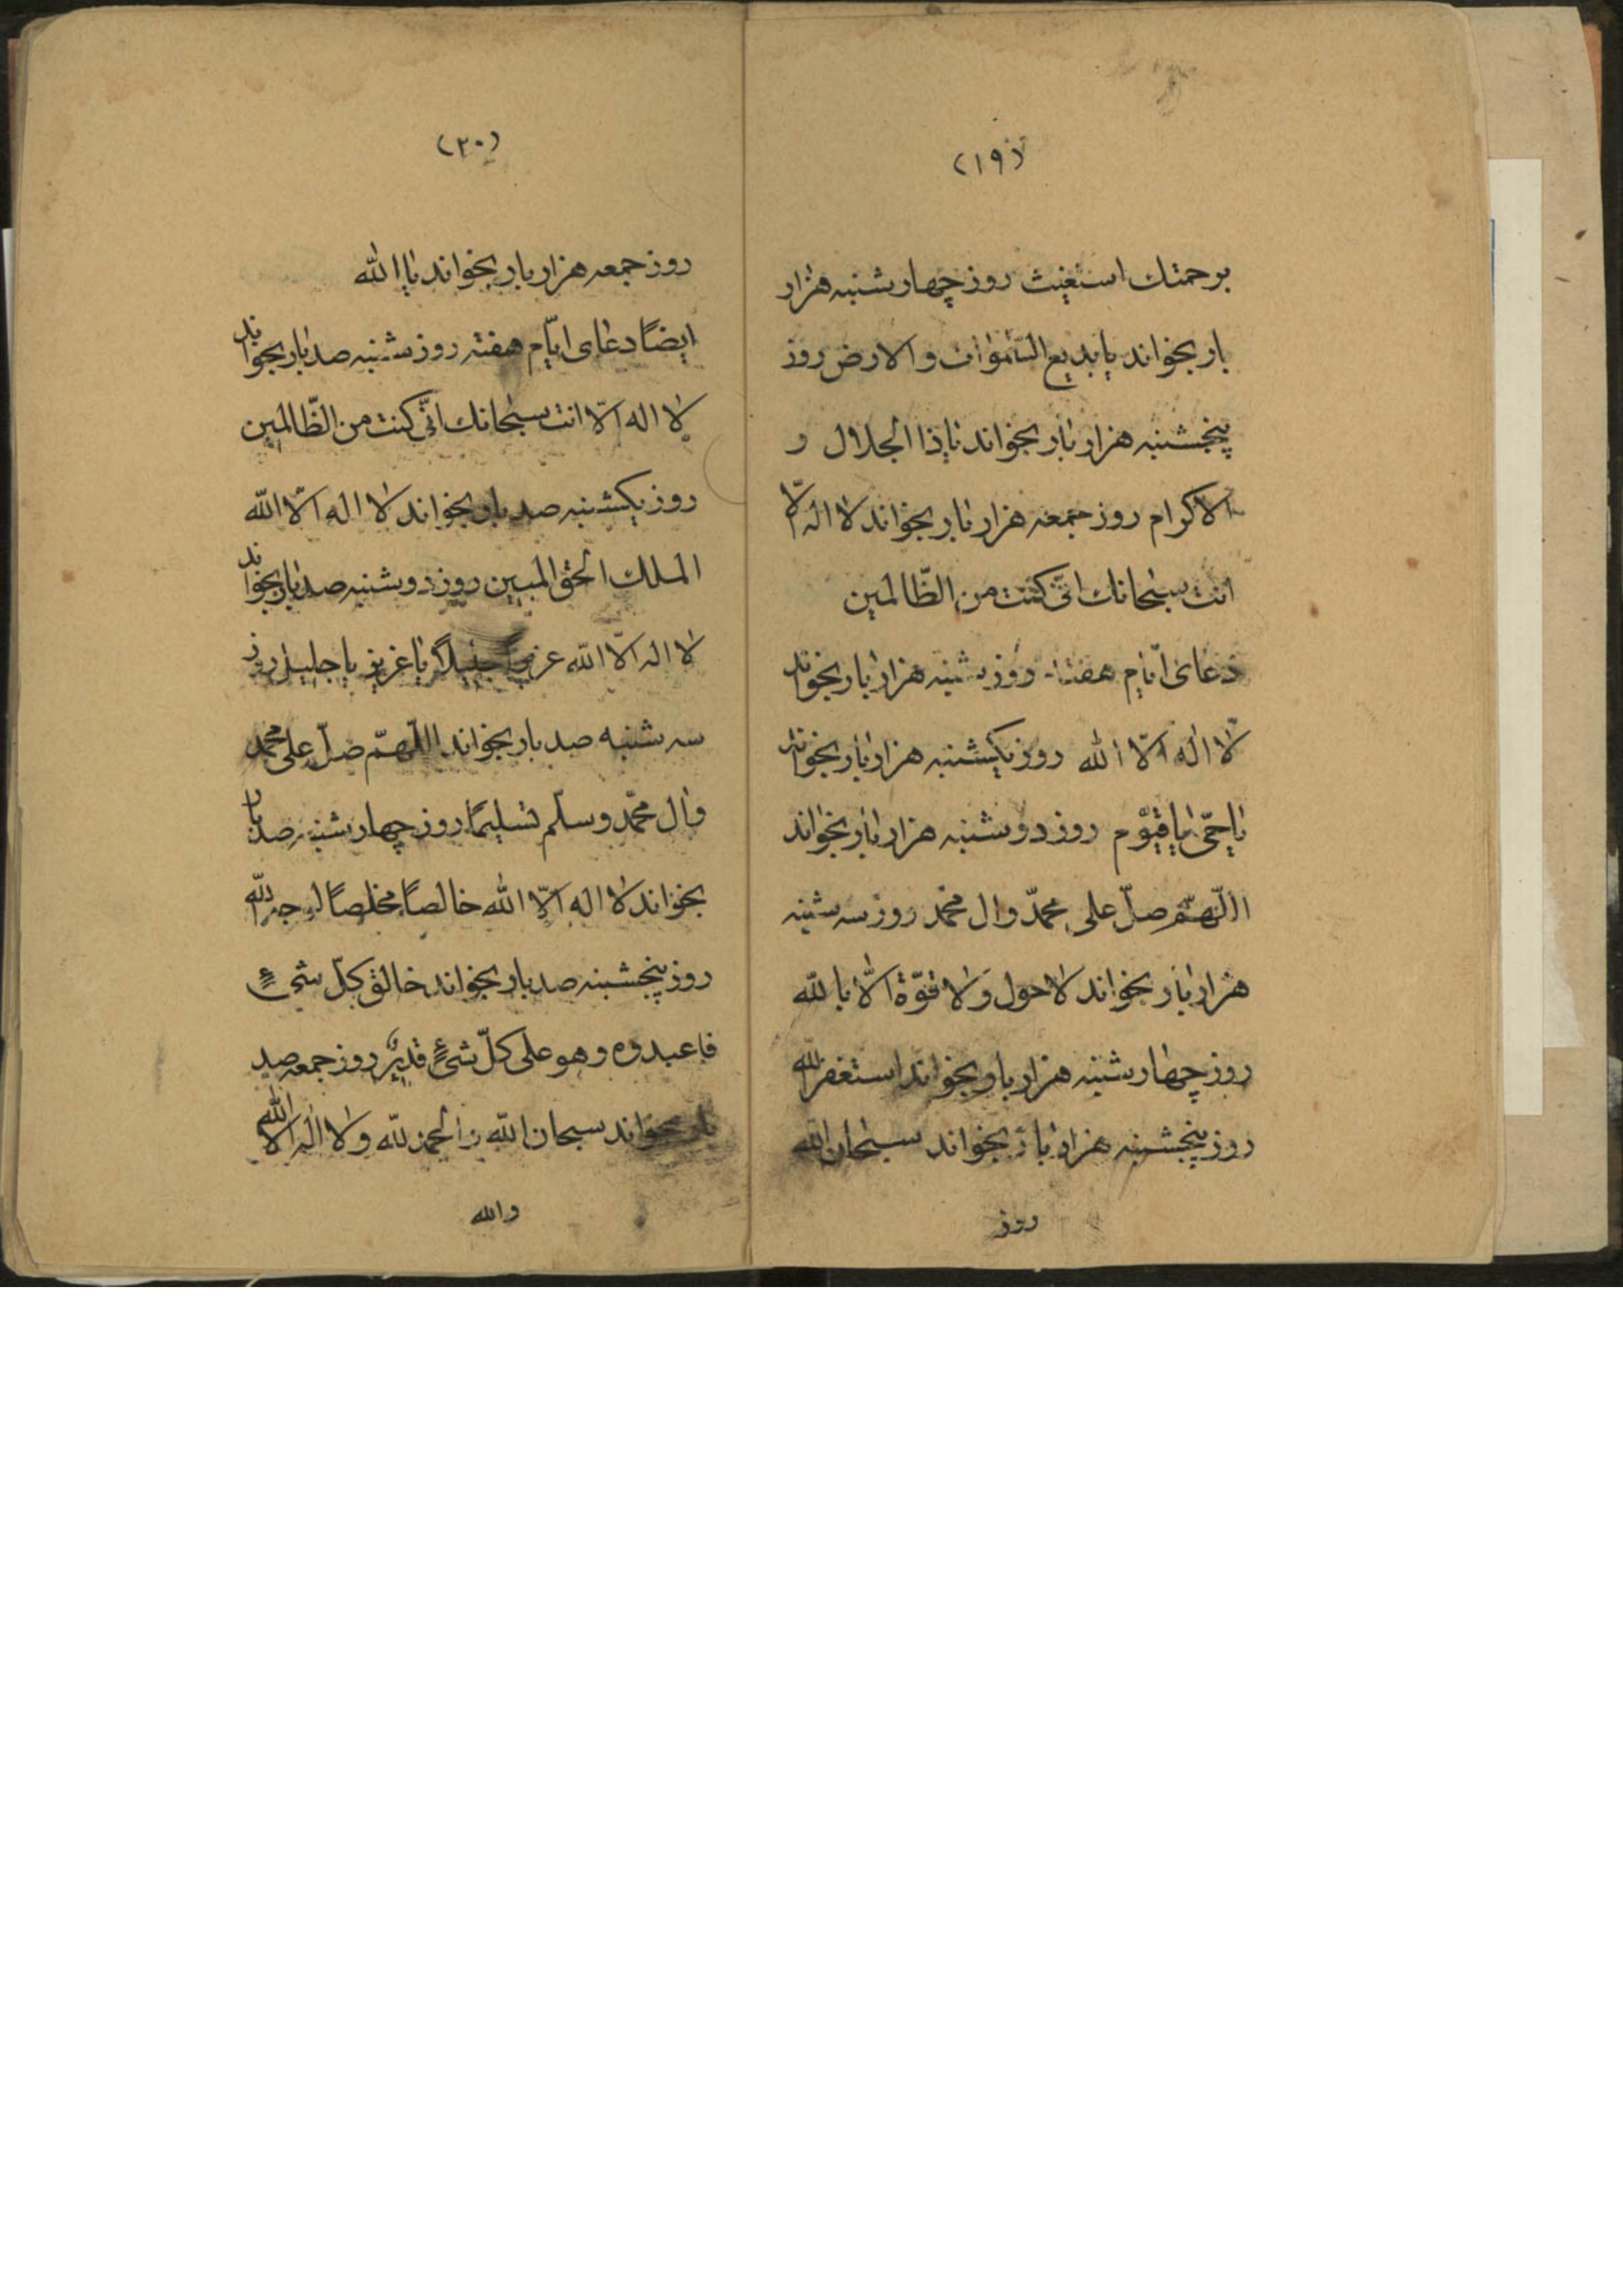 (۱۹)
برحمتك استغیث روز چهارشنبه هزار
بار بخواند یا بدیع السّموات والارض روز
پنجشنبه هزار بار بخواند یا ذا الجلال و
الاکرام روز جمعه هزار بار بخواند لا اله الّا
انت سبحانك انّی کنت من الظّالمین
دعای ایّام هفته روز شنبه هزار بار بخواند
لا اله الّا الله روز یکشنبه هزار بار بخواند
یا حیّ یا قیّوم روز دوشنبه هزار بار بخواند
اللّهمّ صلّ علی محمّد وال محمّد روز سه شنبه
هزار بار بخواند لا حول ولا قوّة الّا بالله
روز چهارشنبه هزار بار بخواند استغفر الله
روز پنجشنبه هزار بار بخواند سبحان الله
روز
(۲۰)
روز جمعه هزار بار بخواند یا الله
ایضًا دعای ایّام هفته روز شنبه صد بار بخواند
لا اله الّا انت سبحانك انّی کنت من الظّالمین
روز یکشنبه صد بار بخواند لا اله الّا الله
الملك الحق المبین روز دوشنبه صد بار بخواند
لا اله الّا الله عزیزًا جلیلًا یا عزیز یا جلیل روز
سه شنبه صد بار بخواند اللّهمّ صلّ علی محمّد
وال محمّد وسلّم تسلیمًا روز چهارشنبه صد بار
بخواند لا اله الّا الله خالصًا مخلصًا لوجه الله
روز پنجشنبه صد بار بخواند خالق کلّ شیءٍ
فاعبدوه وهو علی کلّ شیءٍ قدیرٌ روز جمعه صد
بار بخواند سبحان الله والحمد لله ولا اله الّا الله
والله